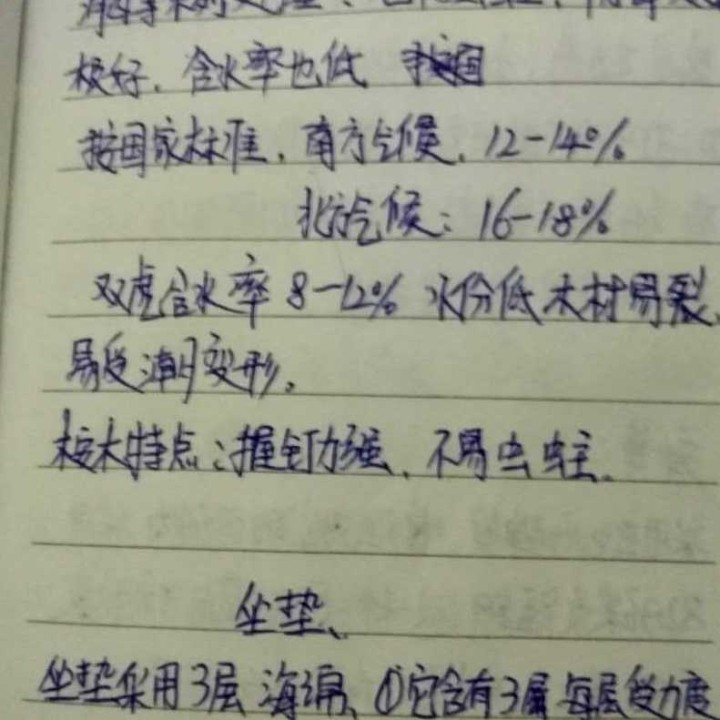 较好.含水率也低
按国家标准.南方气候.12-14%
北方气候:16-18%
双虎含水率8-12%水份低木材易裂.
易受潮变形。
桉木特点:握钉力强.不易虫蛀.
坐垫、
坐垫采用3层海绵、①它含有3层每层受力度